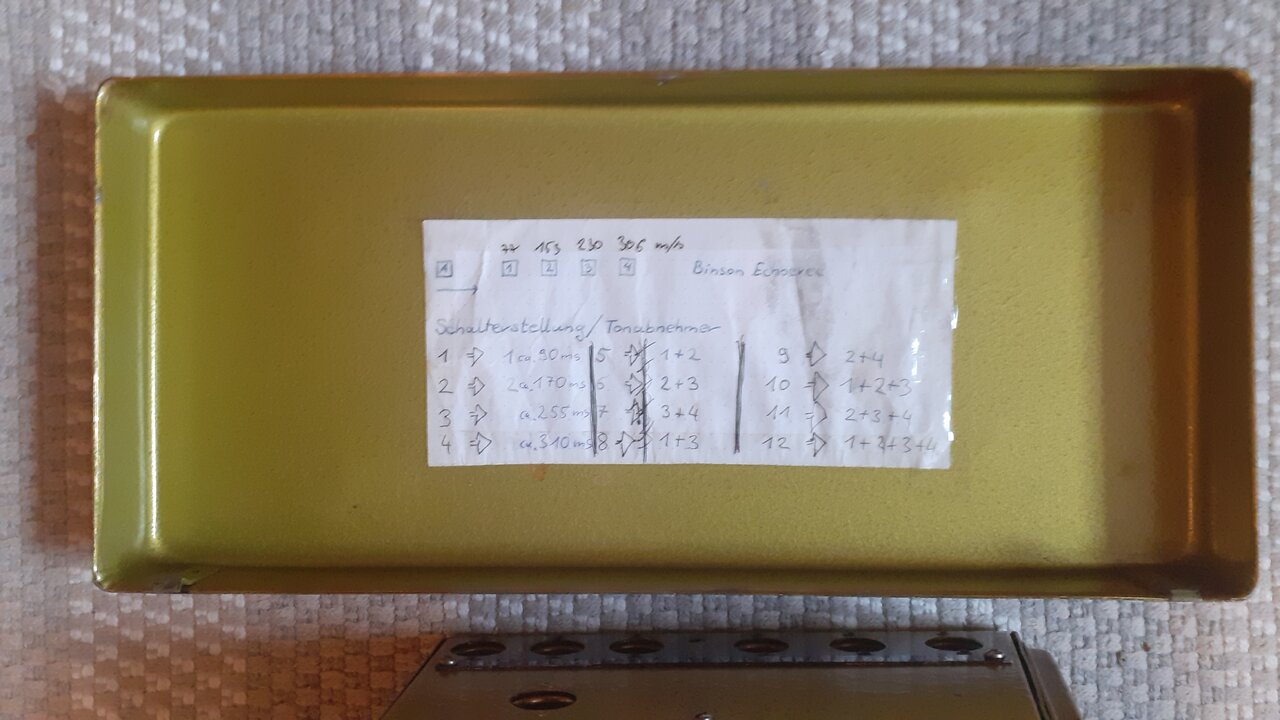 77 153 230 306 m/s
A 1 2 3 4 Binson Echorec
Schalterstellung/Tonabnehmer
1 ⇒ 1 ca. 90 ms 5 ⇒ 1+2 9 ⇒ 2+4
2 ⇒ 2 ca. 170 ms 6 ⇒ 2+3 10 ⇒ 1+2+3
3 ⇒ ca. 255 ms 7 ⇒ 3+4 11 ⇒ 2+3+4
4 ⇒ ca. 310 ms 8 ⇒ 1+3 12 ⇒ 1+2+3+4